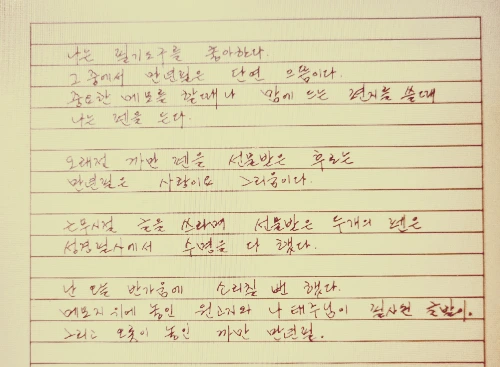 나는 필기도구를 좋아한다.
그 중에서 만년필은 단연 으뜸이다.
중요한 메모를 할때나 맘에 드는 편지를 쓸때
나는 펜을 든다.
오래전 까만 펜을 선물받은 후로는
만년필은 사랑이요 그리움이다.
근무시절 글을 쓰라며 선물받은 두개의 펜은
성경필사에서 수명을 다 했다.
난 오늘 반가움에 소리칠 뻔 했다.
메모지 위에 놓인 원고지와 나태주님이 필사한 글발이.
그리고 오롯이 놓인 까만 만년필.